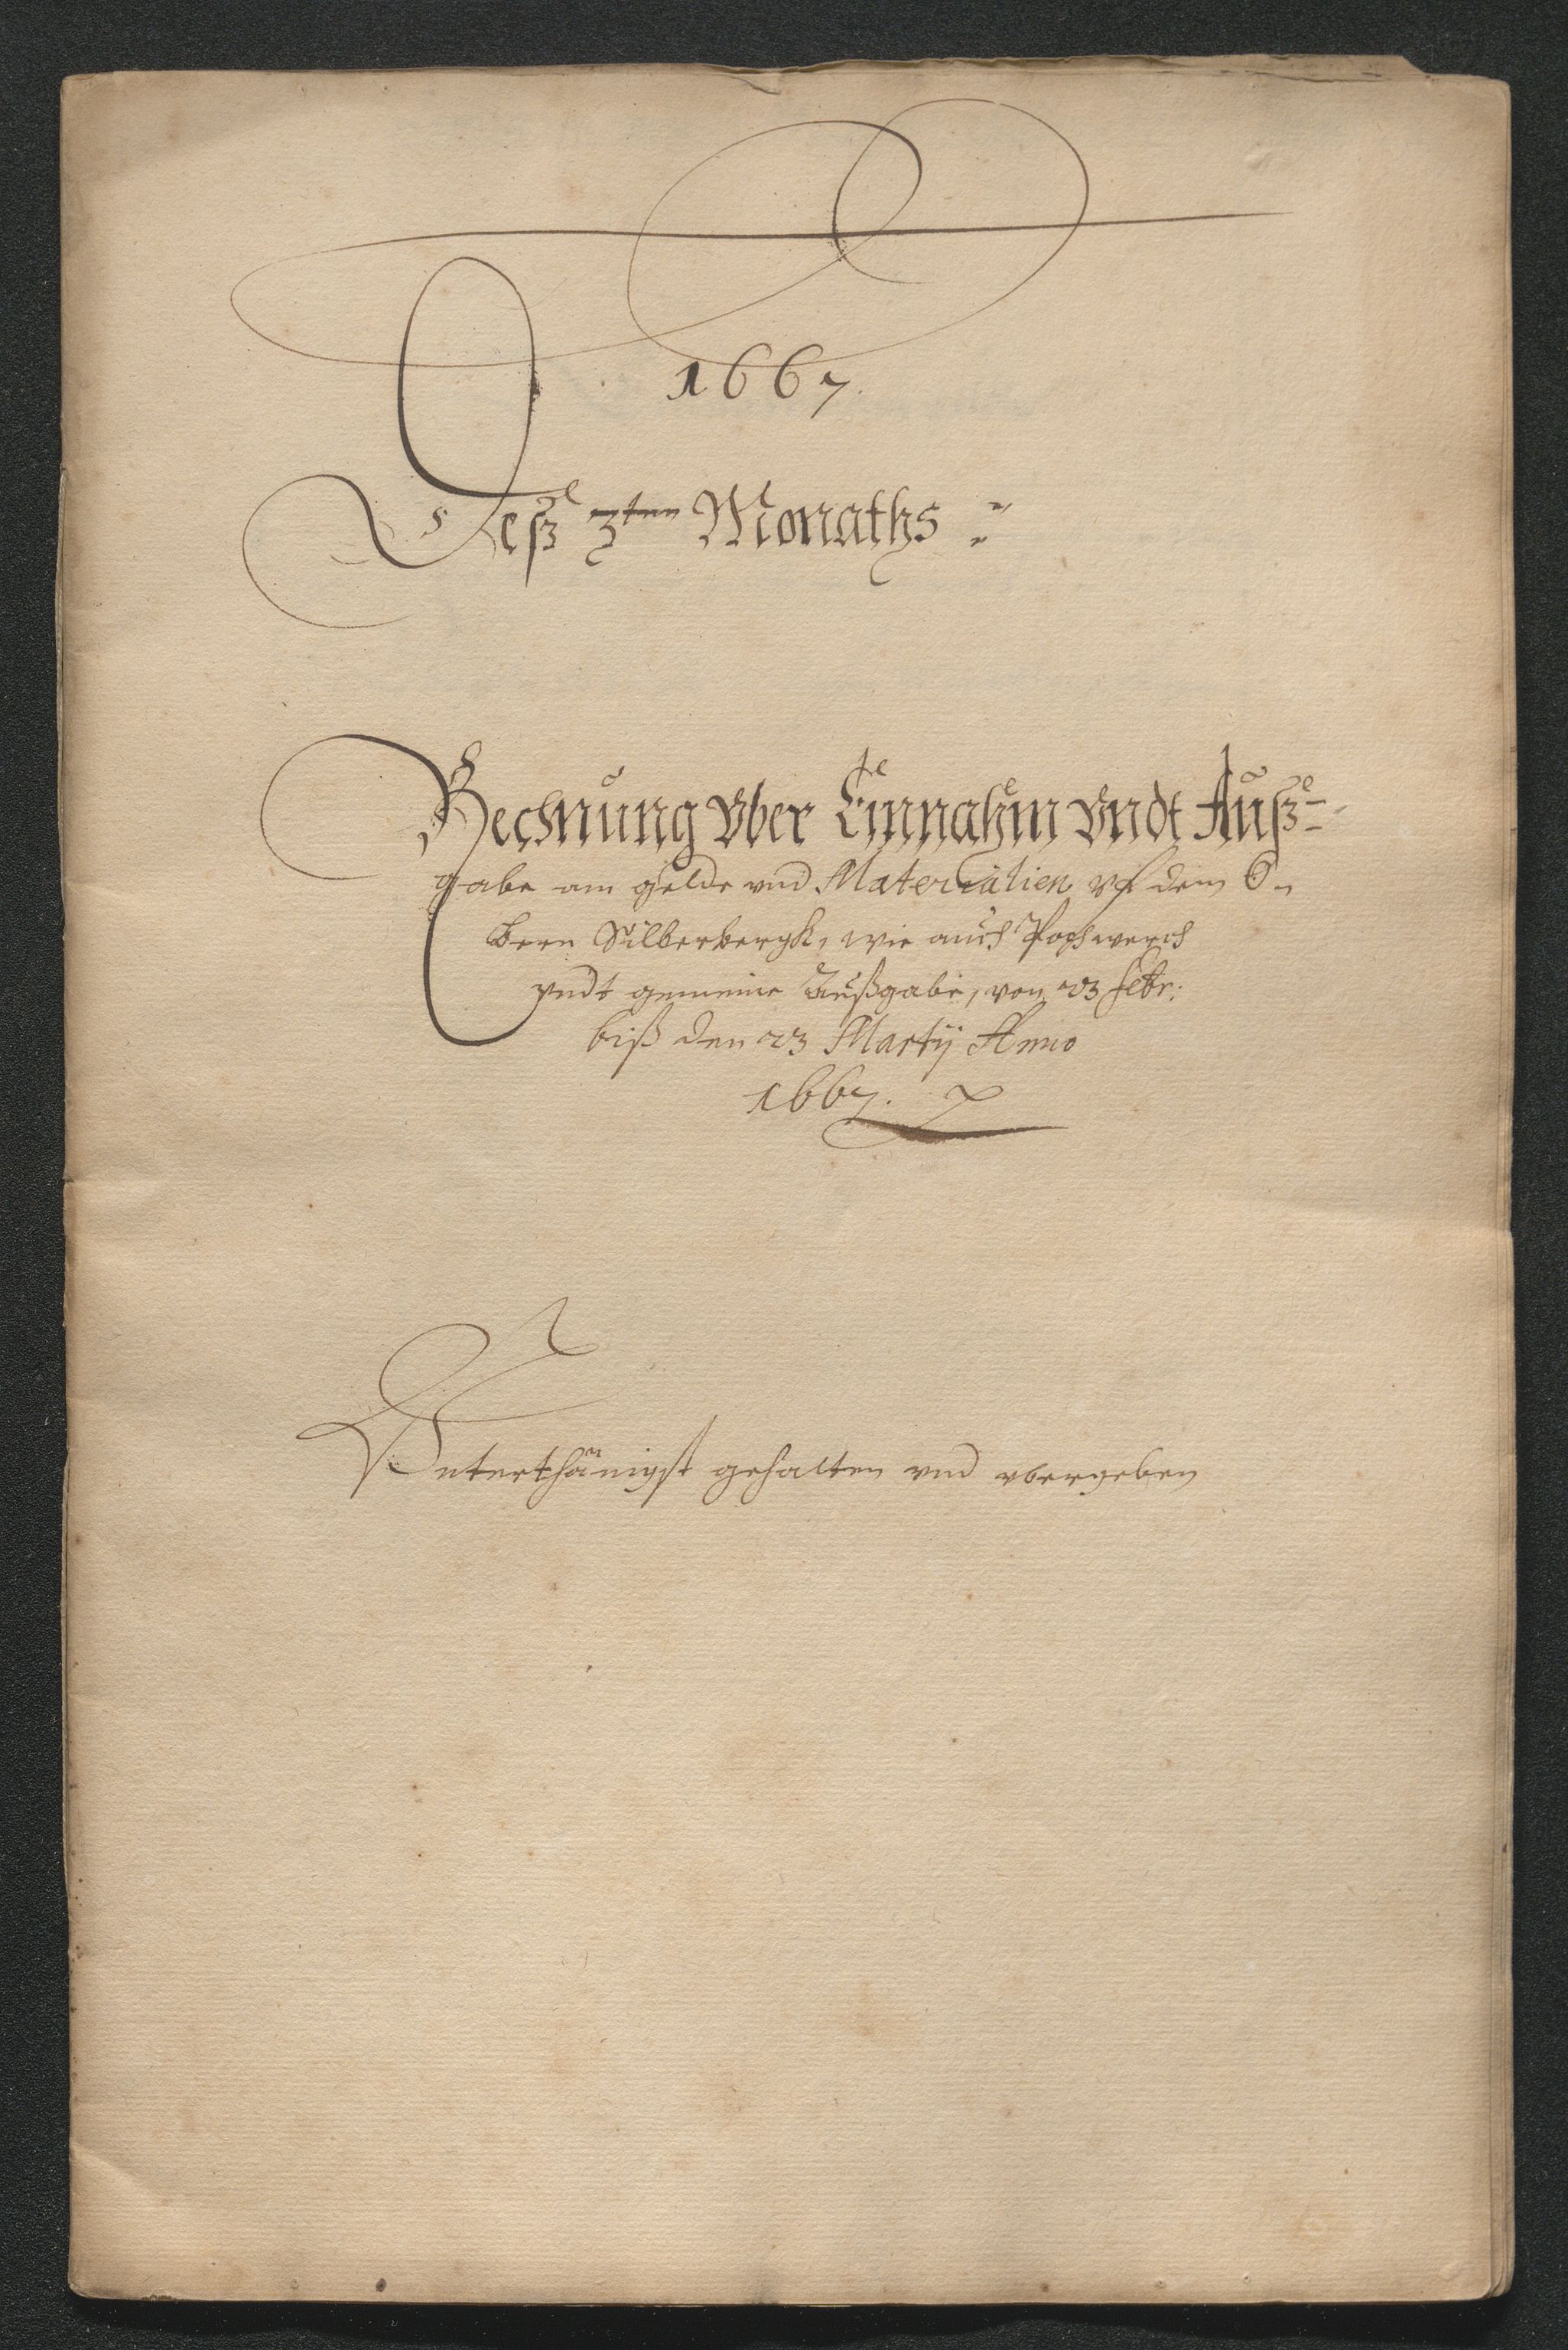 1667.
Deß 3ten Monaths
Rechnung vber Einnahm vndt Auß-
gabe am gelde vnd Materialien vf dem O-
bern Silberbergk, wie auch Pochwerch
vndt gemeine Außgabe, von 23 Febr:
biß den 23 Martij Anno
1667.
Vnterthänigst gehalten vnd vbergeben